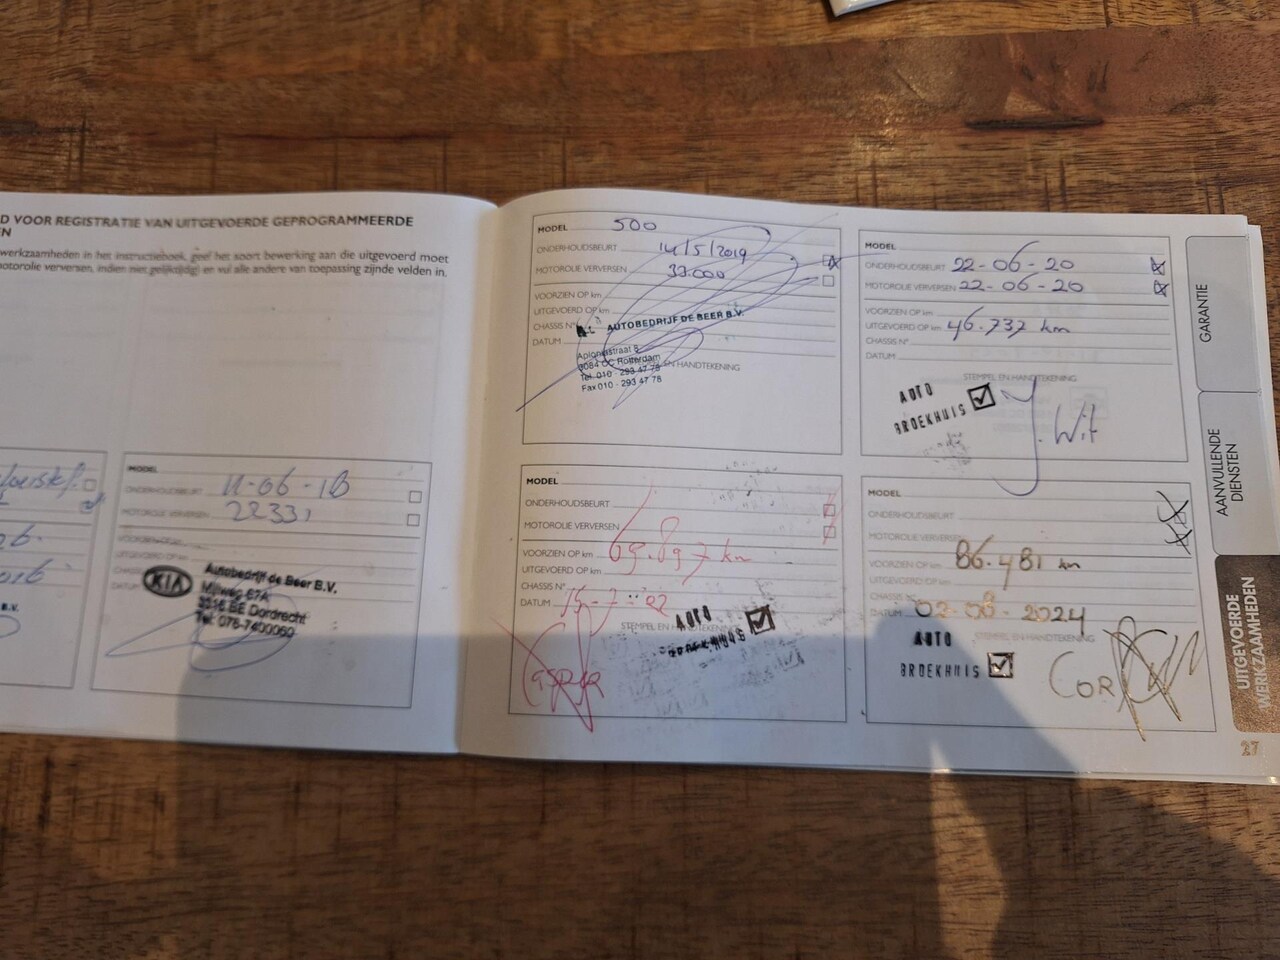 D VOOR REGISTRATIE VAN UITGEVOERDE GEPROGRAMMEERDE
EN
werkzaamheden in het instructieboek, geef het soort bewerking aan die uitgevoerd moet
motorolie verversen, indien niet gelijktijdig) en vul alle andere van toepassing zijnde velden in.
MODEL
ONDERHOUDSBEURT 11-06-18
MOTOROLIE VERVERSEN 22331
VOORZIEN OP km
UITGEVOERD OP km
CHASSIS
DATUM
KIA
Autobedrijf de Beer B.V.
Mijlweg 67A
3316 BE Dordrecht
Tel. 078-7400060
MODEL 500
ONDERHOUDSBEURT 14/5/2019
MOTOROLIE VERVERSEN 33.000
VOORZIEN OP km
UITGEVOERD OP km
CHASSIS N°
DATUM
AUTOBEDRIJF DE BEER B.V.
3084 CC Rotterdam
Tel. 010 - 293 47 78
Fax 010 - 293 47 78
STEMPEL EN HANDTEKENING
MODEL
ONDERHOUDSBEURT 22-06-20
MOTOROLIE VERVERSEN 22-06-20
VOORZIEN OP km
UITGEVOERD OP km 46.737 km
CHASSIS N°
DATUM
STEMPEL EN HANDTEKENING
AUTO
BROEKHUIS
J. Wit
MODEL
ONDERHOUDSBEURT
MOTOROLIE VERVERSEN
VOORZIEN OP km 69.897 km
UITGEVOERD OP km
CHASSIS N°
DATUM 15-7-22
STEMPEL EN HANDTEKENING
AUTO
BROEKHUIS
MODEL
ONDERHOUDSBEURT
MOTOROLIE VERVERSEN
VOORZIEN OP km 86.481 km
UITGEVOERD OP km
CHASSIS N°
DATUM 02-08-2024
STEMPEL EN HANDTEKENING
AUTO
BROEKHUIS
COR
GARANTIE
AANVULLENDE
DIENSTEN
UITGEVOERDE
WERKZAAMHEDEN
27